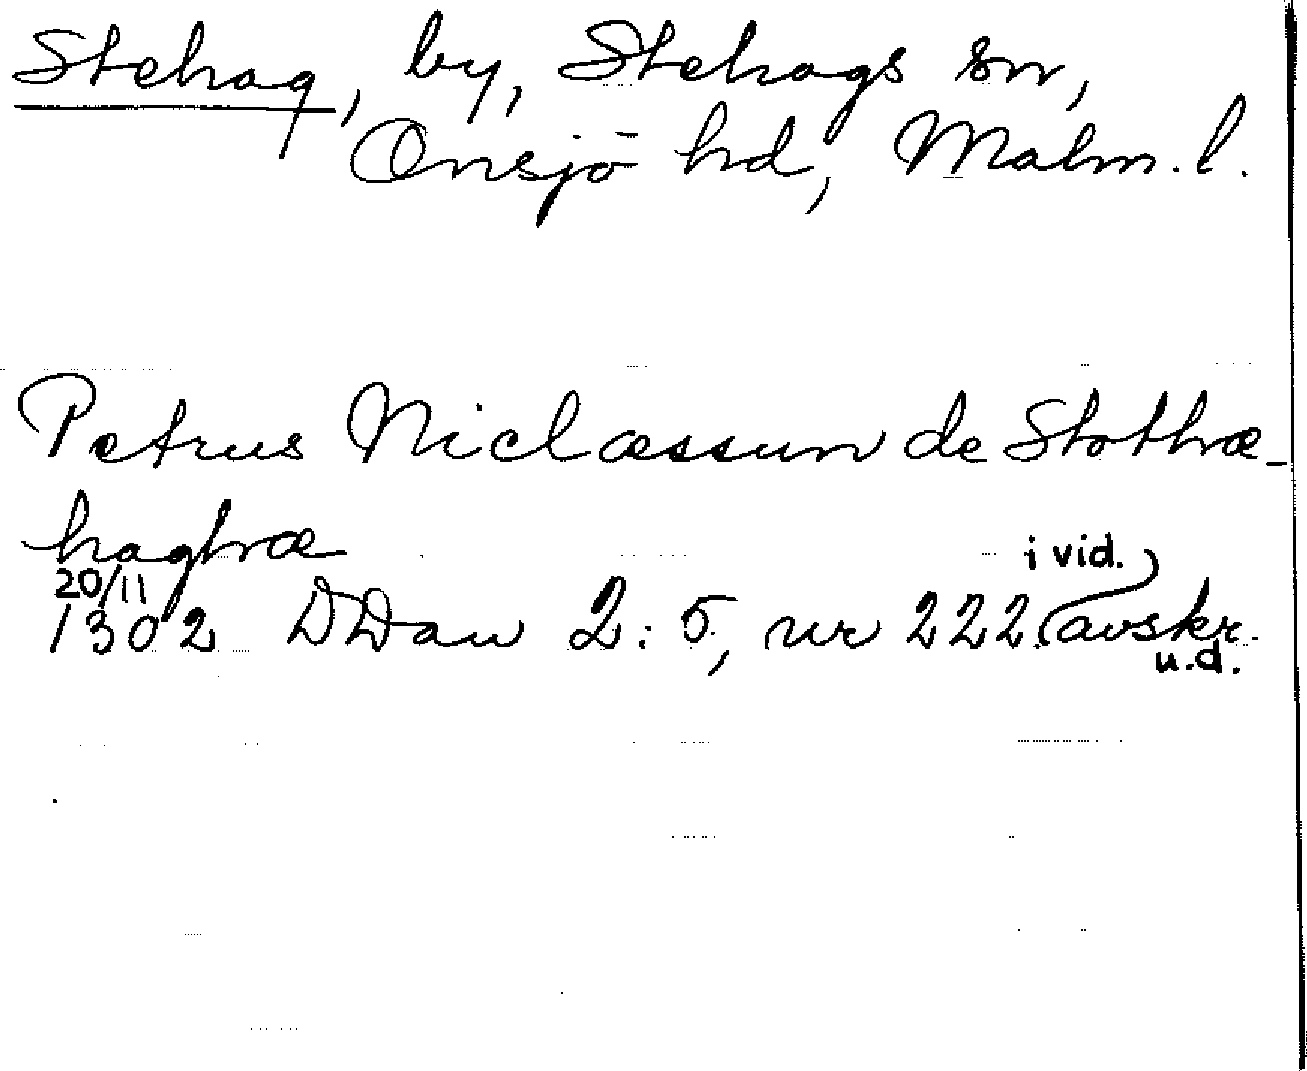 Stehag, by, Stehags sn,
Onsjö hd, Malm. l.
Petrus Niclæssun de Stothræ-
haghræ
20/11 i vid.
1302 DDan 2:5, nr 222 (avskr.
u.d.